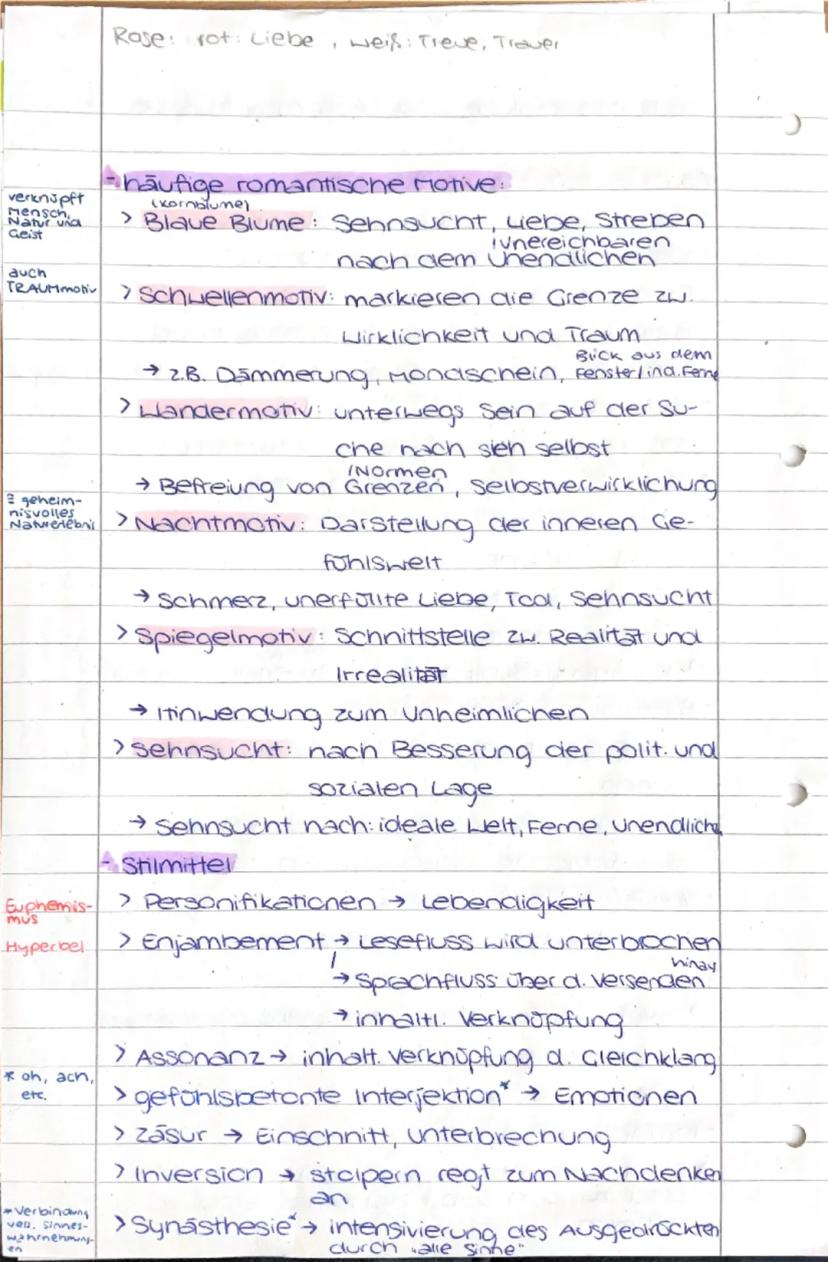 Rose: rot: Liebe, weiß: Treue, Trauer
- häufige romantische Motive:
verknüpft
Mensch,
Natur und
Geist
(Kornblume)
> Blaue Blume: Sehnsucht, Liebe, Streben
/unereichbaren
nach dem Unendlichen
auch
TRAUMmotiv
> Schwellenmotiv: markieren die Grenze zw.
Wirklichkeit und Traum
Blick aus dem
→ z.B. Dämmerung, Mondschein, Fenster/in d. Ferne
> Wandermotiv: unterwegs sein auf der Su-
che nach sich selbst
/Normen
→ Befreiung von Grenzen, Selbstverwirklichung
geheim-
nisvolles
Naturerlebnis
> Nachtmotiv: Darstellung der inneren Ge-
fühlswelt
→ Schmerz, unerfüllte Liebe, Tod, Sehnsucht
> Spiegelmotiv: Schnittstelle zw. Realität und
Irrealität
→ Hinwendung zum Unheimlichen
> Sehnsucht: nach Besserung der polit. und
sozialen Lage
→ Sehnsucht nach: ideale Welt, Ferne, Unendlichk
- Stilmittel
Euphemis-
mus
> Personifikationen → Lebendigkeit
Hyperbel
> Enjambement → Lesefluss wird unterbrochen
hinaus
→ Sprachfluss über d. Versenden
→ inhaltl. Verknüpfung
> Assonanz → inhalt. Verknüpfung d. Gleichklang
* oh, ach,
etc.
> gefühlsbetonte Interjektion* → Emotionen
> Zäsur → Einschnitt, Unterbrechung
> Inversion → stolpern regt zum Nachdenken
an
* Verbindung
versch. Sinnes-
wahrnehmung-
en
> Synästhesie* → intensivierung des Ausgedrückten
durch „alle Sinne"